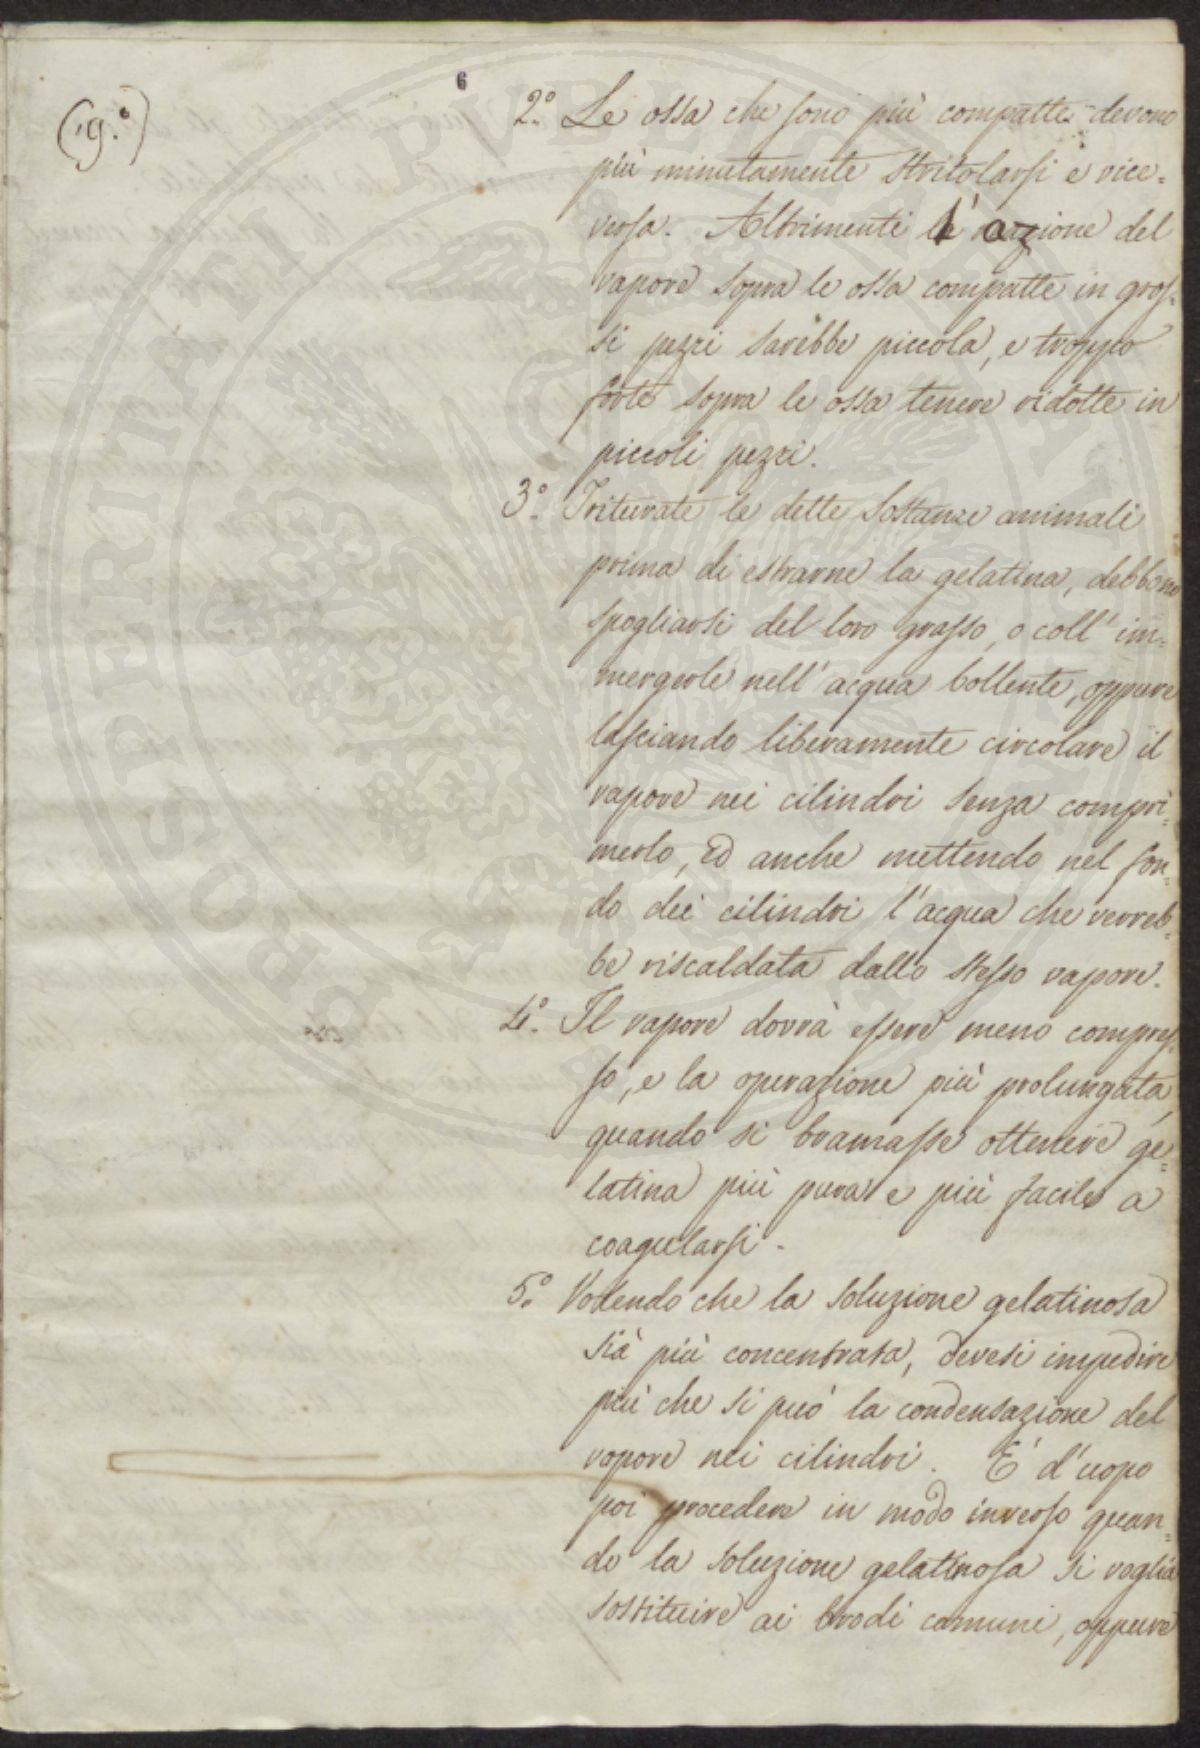 (9.°)
6
2.° Le ossa che sono più compatte devono
più minutamente stritolarsi e vice=
versa. Altrimenti l'azione del
vapore sopra le ossa compatte in gros=
si pezzi sarebbe piccola, e troppo
forte sopra le ossa tenere ridotte in
piccoli pezzi.
3.° Triturate le dette sostanze animali
prima di estrarne la gelatina, debbono
spogliarsi del loro grasso, o coll'im=
mergerle nell'acqua bollente, oppure
lasciando liberamente circolare il
vapore nei cilindri senza compri=
merlo, ed anche mettendo nel fon=
do dei cilindri l'acqua che verreb=
be riscaldata dallo stesso vapore.
4.° Il vapore dovrà essere meno compres=
so, e la operazione più prolungata,
quando si bramasse ottenere ge=
latina più pura e più facile a
coagularsi.
5.° Volendo che la soluzione gelatinosa
sia più concentrata, devesi impedire
più che si può la condensazione del
vapore nei cilindri. E' d'uopo
poi procedere in modo inverso quan=
do la soluzione gelatinosa si voglia
sostituire ai brodi comuni, oppure
PROSPERI
PVBLICAE